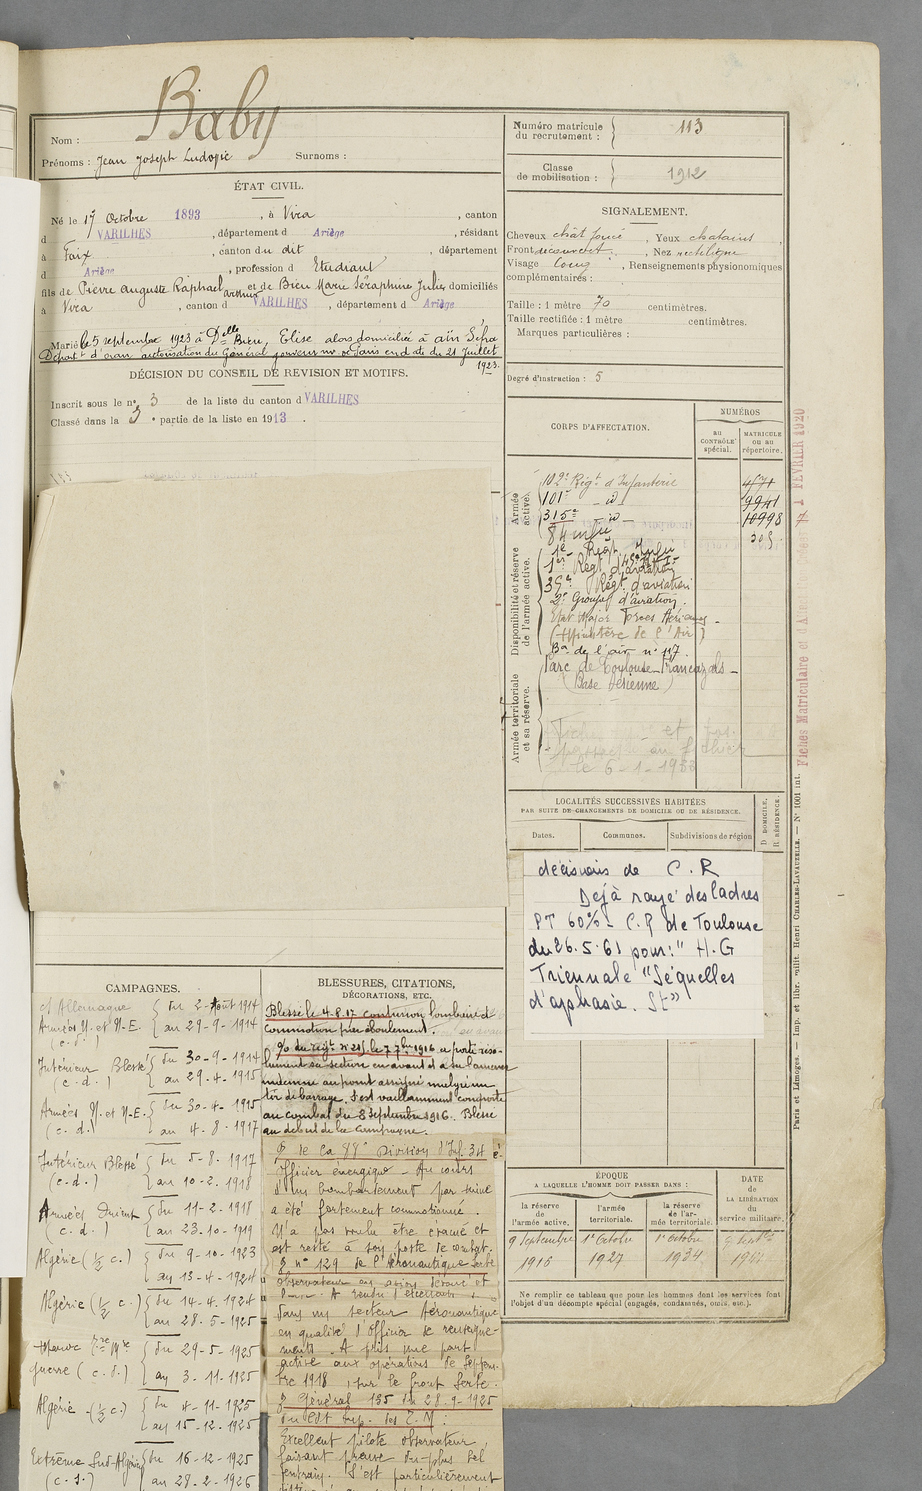 Nom : Baby
Prénoms : Jean Joseph Ludovic Surnoms :
ÉTAT CIVIL.
Né le 17 Octobre 1893, à Vira, canton
d VARILHES, département d Ariège, résidant
à Foix, canton du dit, département
d Ariège, profession d Etudiant
fils de Pierre Auguste Raphaël et de Bieu Marie Séraphine Julie domiciliés
à Vira, canton d VARILHES, département d Ariège
Marié le 5 septembre 1923 à Delle Bieu, Elise alors domiciliée à aïn Sefra
Départt d'oran autorisation du Général gouverneur de Paris en date du 21 Juillet
1923.
DÉCISION DU CONSEIL DE REVISION ET MOTIFS.
Inscrit sous le no 3 de la liste du canton d VARILHES
Classé dans la 5e partie de la liste en 1913.
Numéro matricule du recrutement : 113
Classe de mobilisation : 1912
SIGNALEMENT.
Cheveux chât foncé, Yeux chatains
Front découvert, Nez rectiligne
Visage long, Renseignements physionomiques
complémentaires :
Taille : 1 mètre 70 centimètres.
Taille rectifiée : 1 mètre centimètres.
Marques particulières :
Degré d'instruction : 5
CORPS D'AFFECTATION.
NUMÉROS
AU CONTRÔLE spécial.
MATRICULE OU AU répertoire.
Armée active.
102e Régt d'Infanterie 4571
101e _ id _ 9941
315e _ id _ 10998
84 Infie 305
Disponibilité et réserve de l'armée active.
1er Régt d'aviation
35e Régt d'aviation
2e Groupe d'aviation.
Etat Major Forces Aériennes -
(Ministère de l'Air)
Bon de l'air no 117.
Armée territoriale et sa réserve.
Parc de Toulouse-Francazals -
(Base Aérienne)
le 6-1-1953
Fiches Matriculaire et d'Affectation 7 FEVRIER 1920
LOCALITÉS SUCCESSIVES HABITÉES
PAR SUITE DE CHANGEMENTS DE DOMICILE OU DE RÉSIDENCE.
Dates. Communes. Subdivisions de région D DOMICILE. R RÉSIDENCE.
décisions de C.R
Dejà rayé des Cadres
PT 60% - C.R de Toulouse
du 26.5.61 pour : "H.G
Triennale "Séquelles
d'aphasie. St"
ÉPOQUE
A LAQUELLE L'HOMME DOIT PASSER DANS :
la réserve de l'armée active.
l'armée territoriale.
la réserve de l'armée territoriale.
DATE DE LA LIBÉRATION du service militaire.
9 Septembre 1er Octobre 1er Octobre
1916 1927 1934
Ne remplir ce tableau que pour les hommes dont les services font
l'objet d'un décompte spécial (engagés, condamnés, omis, etc.).
Paris et Limoges. — Imp. et libr. milit. Henri CHARLES-LAVAUZELLE. — No 1001 int.
CAMPAGNES.
ct Allemagne
Armées N. et N-E. (c.d.) du 2-Août 1914
au 29-9-1914
Intérieur Blessé (c.d.) du 30-9-1914
au 29-4-1915
Armées N. et N-E. (c.d.) du 30-4-1915
au 4-8-1917
Intérieur Blessé (c.d.) du 5-8-1917
au 10-2-1918
Armées Orient (c.d.) du 11-2-1918
au 23-10-1919
Algérie (½ c.) du 9-10-1923
au 13-4-1924
Algérie (½ c.) du 14-4-1924
au 28-5-1925
Maroc
guerre (c.d.) du 29-5-1925
au 3-11-1925
Algérie (½ c.) du 4-11-1925
au 15-12-1925
Extrême Sud-Algérien (c.s.) du 16-12-1925
au 28-2-1926
BLESSURES, CITATIONS,
DÉCORATIONS, ETC.
Blessé le 4.8.17 contusion lombaire d
Commotion par éboulement.
O/o du régt no 215 le 7 7bre 1916 a porté réso-
lument sa section en avant et a su l'amener
indemne au point assigné malgré un
tir de barrage. S'est vaillamment comporté
au combat du 3 Septembre 1916. Blessé
au début de la Campagne.
de la 88e Division d'Inf.
Officier énergique - Au cours
d'un bombardement par mine
a été fortement commotionné.
N'a pas voulu être évacué et
est resté à son poste de combat.
no 129 de l'Aéronautique Serbe
Observateur en avion dévoué et
A rendu d'excellents
dans un secteur Aéronautique
en qualité d'officier de renseigne-
ments. A pris une part
active aux opérations de Septem-
bre 1918, sur le front Serbe.
Général 135 du 28.9-1925
du Cdt Sup. des T.M :
Excellent pilote observateur,
faisant preuve du plus bel
entrain. S'est particulièrement